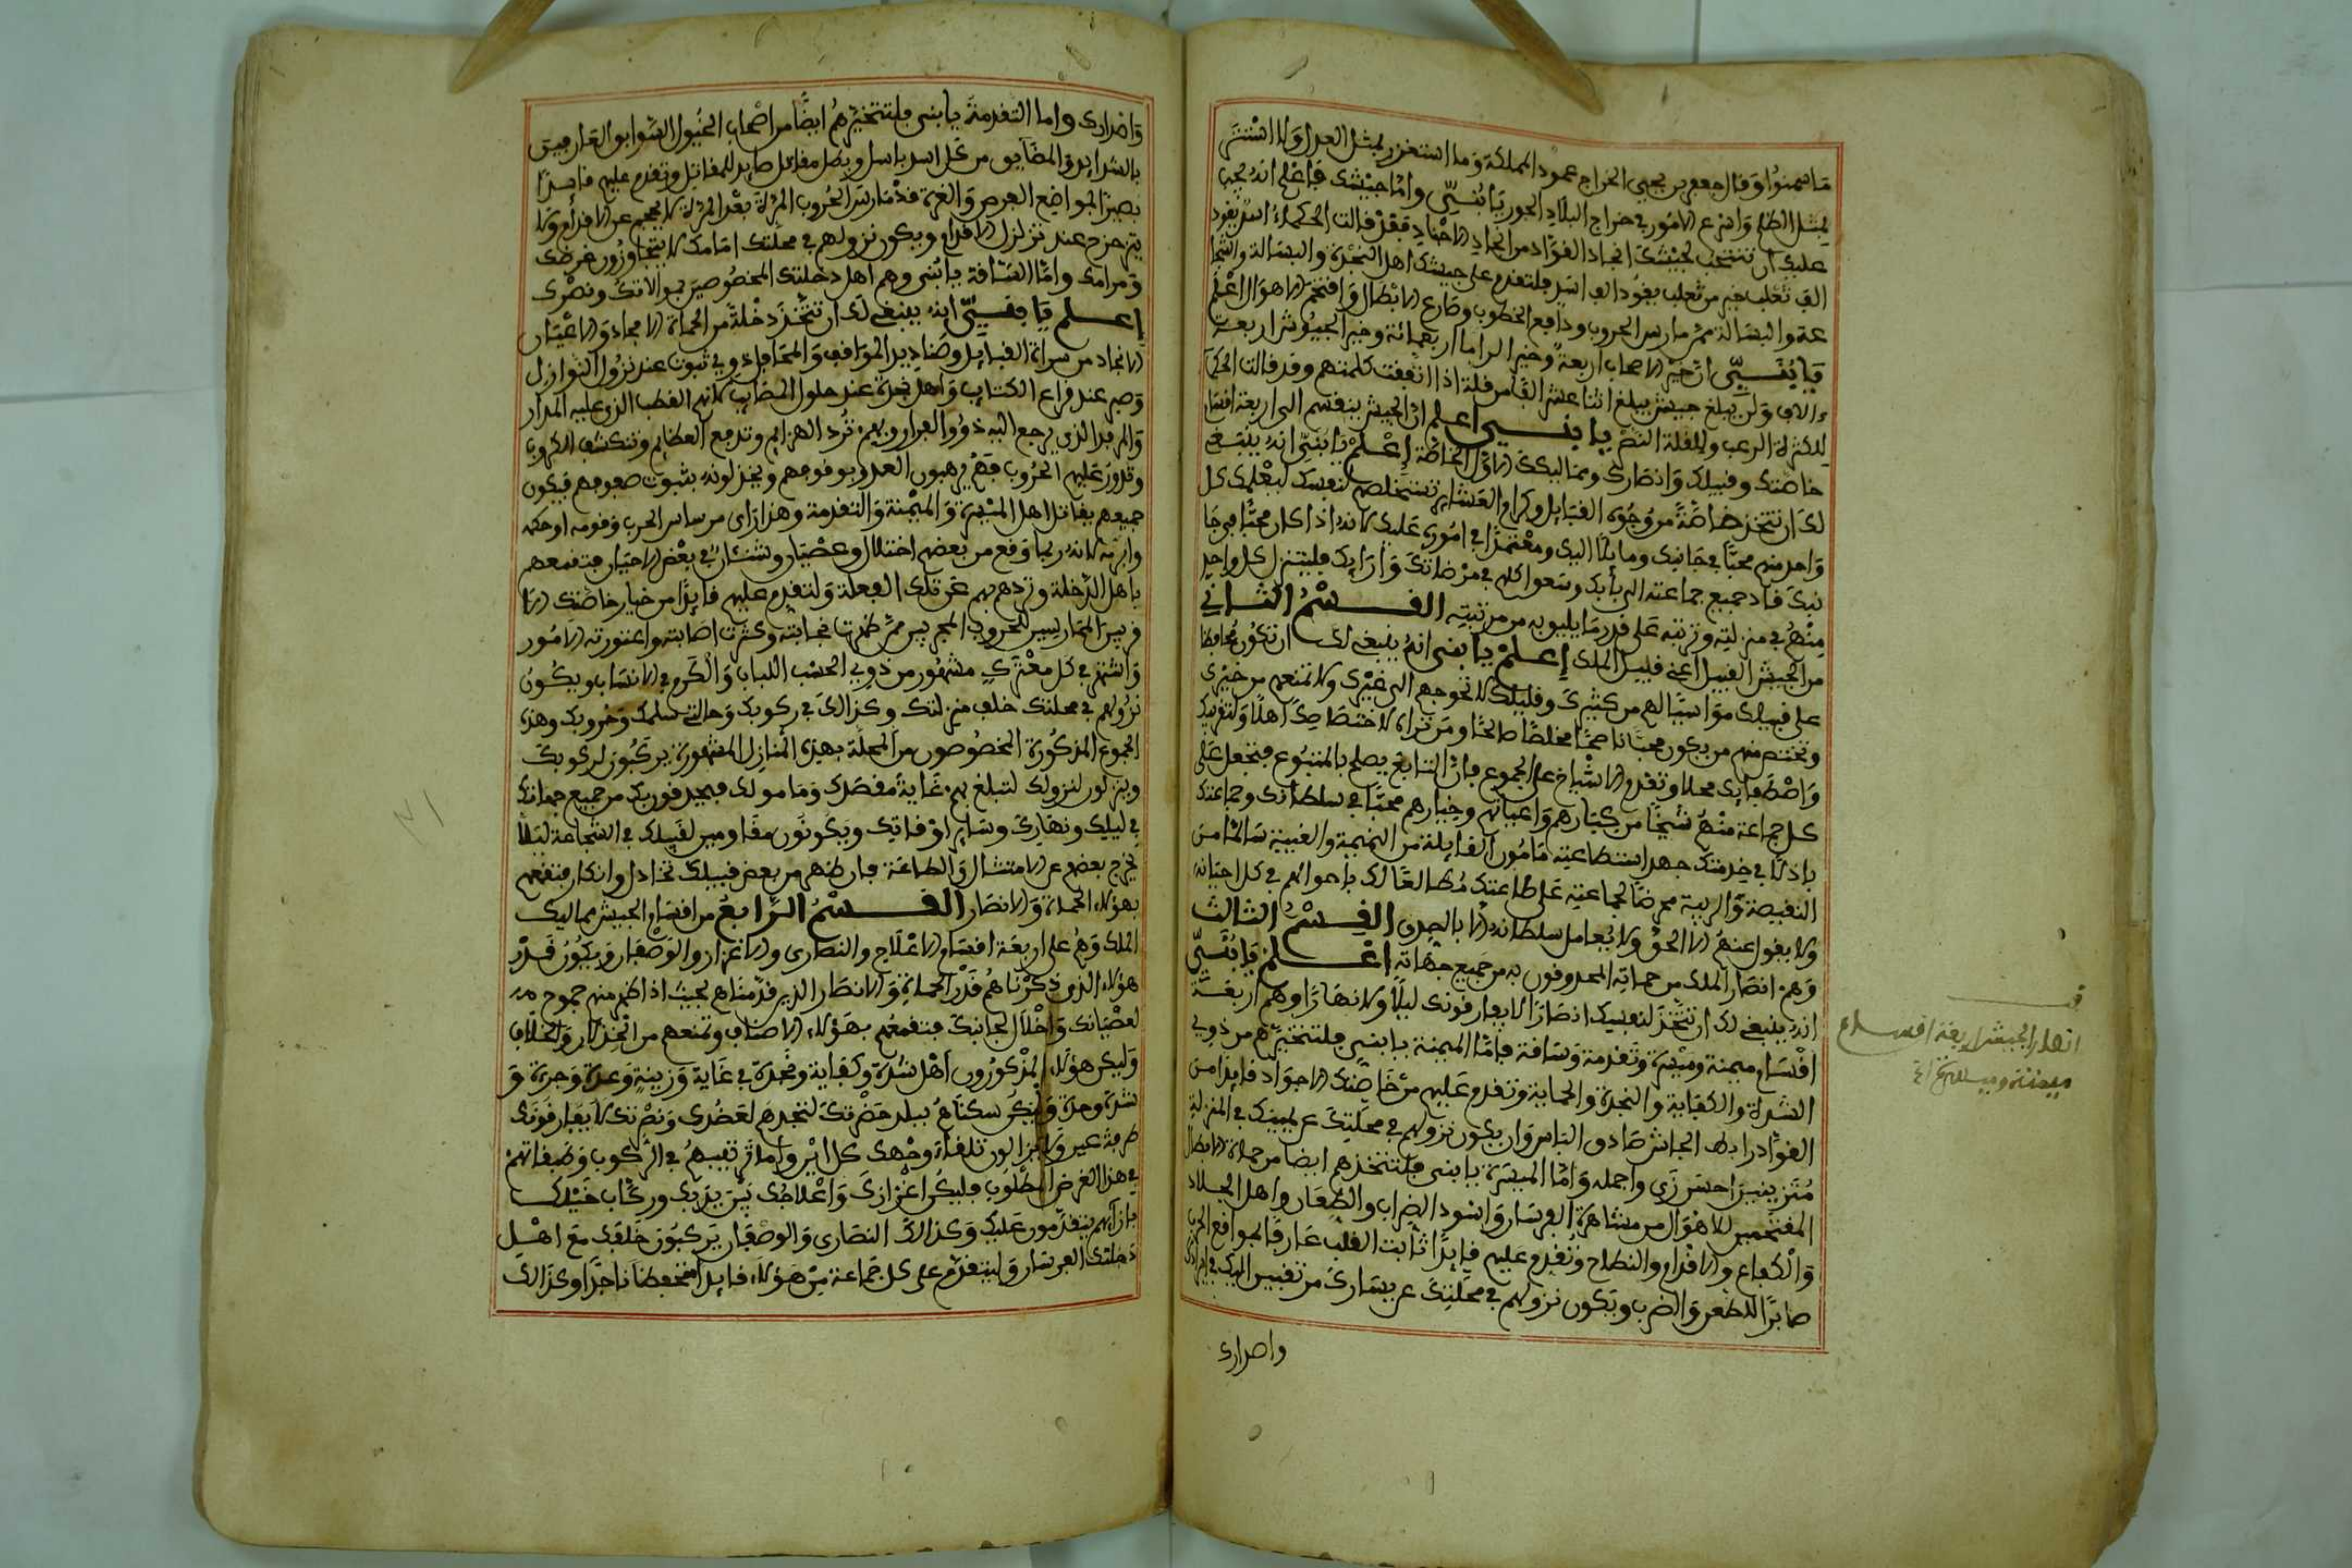 ما سمنوا وقال جعفر بن يحيى الخراج عمود المملكة وما استغزر بمثل العدل ولا استنزر
بمثل الظلم واسرع الامور في خراج البلاد الجور يا بني واما جيشك فاعلم انه يجب
عليك ان تنتخب لجيشك انجاد القواد من انجاد الاجناد فقد قالت الحكماء اسد يقود
الف ثعلب خير من ثعلب يقود الف اسد فلتقدم على جيشك اهل النجدة والبسالة والشجا
عة والبسالة ممن مارس الحروب ودافع الخطوب وصارع الابطال واقتحم الاهوال اعلم
يا بني ان خير الاصحاب اربعة وخير السرايا اربعمائة وخير الجيوش اربعة
ءالاف ولن يبلغ جيش يبلغ اثنا عشر الفا من قلة اذا اتفقت كلمتهم وقد قالت الحكما
للكثرة الرعب وللقلة النصر يا بني اعلم ان الجيش ينقسم الى اربعة اقسام
خاصتك وقبيلك وانصارك ومماليكك الاول الخاصة اعلم يا بني انه ينبغي
لك ان تتخذ خاصة من وجوه القبائل وكرام العشاير تستخلصهم لنفسك لتعلمك كل
واحد منهم محبا في جانبك ومايلا اليك ومعتمدا في امورك عليك لانه اذا كان محبا في جا
نبك قاد جميع جماعته الى بابك وسعوا كلهم في مرضاتك وارابك فليتنزل كل واحد
منهم في منزلته ورتبته على قدر ما يليق به من مرتبته القسم الثاني
من الجيش القبيل اعني قبيل الملك اعلم يا بني انه ينبغي لك ان تكون محافظا
على قبيلك مواسيا لهم من كثيرك وقليلك لا تحوجهم الى غيرك ولا تمنعهم من خيرك
وتختص منهم من يكون محبا ناصحا مخلصا صالحا ومن تراه لاختصاصك اهلا ولتقريبك
واصطفايك محلا وتقدم الاشياخ على الجموع فان التابع يصلح بالمتبوع فتجعل على
كل جماعة منهم شيخا من كبارهم واعيانهم وخيارهم محبا في سلطانك وجماعتك
باذلا في خدمتك جهد استطاعته مامون القايلة من النميمة والغيبة سالما من
النقيصة والريبة محرضا لجماعته على طاعتك مطالعا لك باحوالهم في كل احيانه
ولا يقول عنهم الا الحق ولا يعامل سلطانه الا بالصدق القسم الثالث
وهم انصار الملك من حماته المحدوقون به من جميع جهاته اعلم يا بني
انه ينبغي لك ان تتخذ لنفسك انصارا لا يفارقونك ليلا ولا نهارا وهم اربعة
اقسام ميمنة وميسرة وتقدمة وساقة فاما الميمنة يا بني فلتتخيرهم من ذوي
الشدة والكفاية والنجدة والحماية وتقدم عليهم من خاصتك الاجواد قايدا من
القواد رابط الجاش صادق الباس وان يكون نزولهم في محلتك عن يمينك في المنزلة
متزينين احسن زي واجمله واما الميسرة يا بني فلتتخذهم ايضا من حماة الابطال
المقتحمين للاهوال من مشاهرة الفرسان واسود الضراب والطعان واهل الجلاد
والكفاع والاقدام والنطاح وتقدم عليهم قايدا ثابت القلب عارفا بمواقع الحرب
صابرا للطعن والضرب ويكون نزولهم في محلتك عن يسارك من تفيير اليك في ايرادك
واصدارك
انصار الجيش اربعة اقسام
ميمنة وميسرة الخ
واصدارك واما التقدمة يا بني فلتتخيرهم ايضا من اصحاب الخيول السوابق العارفين
بالشدايد والمضايق من كل اسد باسل وبطل مقاتل صايد للمقاتل وتقدم عليهم قايدا
بصيرا بمواضع الفرص والغرة قد مارس الحروب المرة بعد المرة لا يحجم عن الاقدام ولا
يتزحزح عند تزلزل الاقدام ويكون نزولهم في محلتك امامك لا يتجاوزون غرضك
ومرامك واما الساقة يا بني وهم اهل دخلتك المخصوصين بموالاتك ونصرك
اعلم يا بني انه ينبغي لك ان تتخذ دخلة من الحماة الامجاد والاعيان
الانجاد من سراة القبايل وصناديد المواقف والمحافل ذوي ثبوت عند نزول النوازل
وصبر عند قراع الكتايب واهل نجدة عند حلول المصايب لانهم القطب الذي عليه المدار
والمركز الذي يرجع اليه ذوو الفرار وبهم ترد الهزايم وتدفع العظايم وتنكشف الكروب
وتدور عليهم الحروب فهم يرهبون العدو بوقوفهم ويخذلونه بثبوت صفوفهم فيكون
جميعهم يقاتل اهل الميسرة والميمنة والتقدمة وهذا راي من ساس الحرب وقومه او حكمه
وابرمه لانه ربما وقع من بعضهم اختلال وعصيان وشنئان في بعض الاحيان فتقمعهم
باهل الدخلة وتردهم بهم عن تلك الفعلة ولتقدم عليهم قايدا من خيار خاصتك الاقـ
ربين الممارسين للحروب المجربين ممن ظهرت نجابته وكثرت اصابته واعتورته الامور
واشتهر في كل معترك مشهور من ذوي الحسب اللباب والكرم في الانساب ويكون
نزولهم في محلتك خلف منزلتك وكذالك في ركوبك وحالتي سلمك وحروبك وهذه
الجموع المذكورة المخصوصون من المحلة بهذه المنازل المشهورة يركبون لركوبك
وينزلون لنزولك لتبلغ بهم غاية مقصدك ومامولك فيحدقون بك من جميع جهاتك
في ليلك ونهارك وساير اوقاتك ويكونون مقاومين لقبيلك في الشجاعة ليلا
يخرج بعضهم عن الامتثال والطاعة فان ظهر من بعض قبيلك تخاذل وانكار فتقمعهم
بهؤلاء الحماة والانصار القسم الرابع من اقسام الجيش مماليك
الملك وهم على اربعة اقسام الاعلاج والنصارى والاغزاز والوصفان ويكون قدر
هؤلاء الذين ذكرناهم قدر الحماة والانصار الذين قدمناهم بحيث اذا ظهر منهم جموح
لعصيانك واخلال لجانبك فتقمعهم بهؤلاء الاصناف وتمنعهم من الخذلان والخلاف
وليكن هؤلاء المذكورون اهل شدة وكفاية ونجدة في غاية وزينة وعدة وجرة و
شدة ومرة وليكن سكناهم ببلد حضرتك لتجدهم لعضدك ونصرتك لا يفارقونك
طرفة عين ولا يزالون تلقاء وجهك كل اين واما ترتيبهم في الركوب وصفاتهم
في هذا الغرض المطلوب فليكن اغزازك واعلاجك بين يديك وركاب خيلك
بازايهم يتقدمون عليك وكذالك النصارى والوصفان يركبون خلفك مع اهل
دخلتك الفرسان وليتقدم على كل جماعة من هؤلاء قايدا متحفظا ناجدا وكذالك